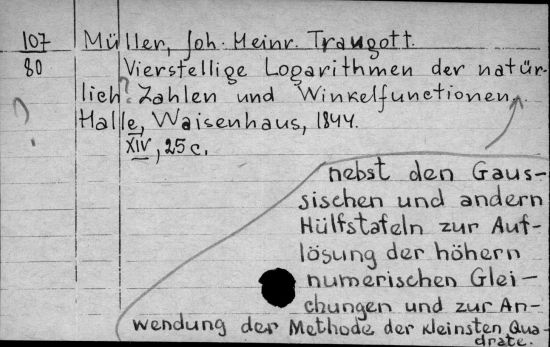 107 Müller, Joh. Heinr. Traugott.
80 Vierstellige Logarithmen der natür-
lich? Zahlen und Winkelfunctionen,
? Halle, Waisenhaus, 1844.
XIV, 25 c.
nebst den Gaus-
sischen und andern
Hülfstafeln zur Auf-
lösung der höhern
numerischen Glei-
chungen und zur An-
wendung der Methode der kleinsten Qua-
drate.